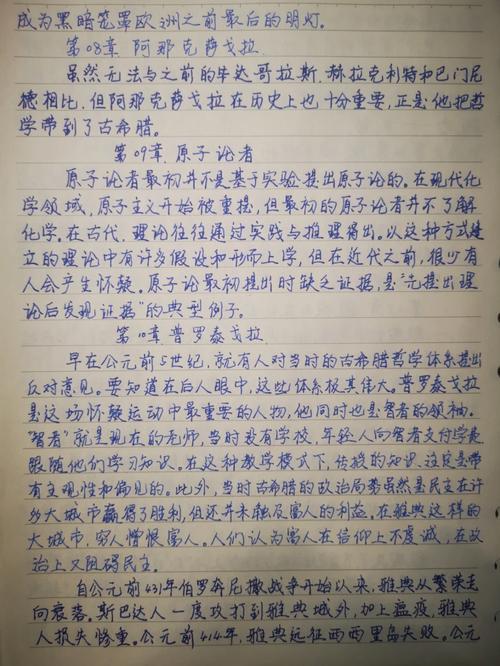 成为黑暗笼罩欧洲之前最后的明灯。
第08章 阿那克萨戈拉
虽然无法与之前的毕达哥拉斯、赫拉克利特和巴门尼
德相比，但阿那克萨戈拉在历史上也十分重要，正是他把哲
学带到了古希腊。
第09章 原子论者
原子论者最初并不是基于实验提出原子论的。在现代化
学领域，原子主义开始被重提，但最初的原子论者并不了解
化学。在古代，理论往往通过实践与推理得出。以这种方式建
立的理论中有许多假设和形而上学，但在近代之前，很少有
人会产生怀疑。原子论最初提出时缺乏证据，是“先提出理
论后发现证据”的典型例子。
第10章 普罗泰戈拉
早在公元前5世纪，就有人对当时的古希腊哲学体系提出
反对意见。要知道在后人眼中，这些体系极其伟大。普罗泰戈拉
是这场怀疑运动中最重要的人物，他同时也是智者的领袖。
“智者”就是现在的老师，当时没有学校，年轻人向智者支付学费
跟随他们学习知识。在这种教学模式下，传授的知识注定是带
有主观性和偏见的。此外，当时古希腊的政治局势虽然是民主在许
多大城市赢得了胜利，但还并未触及富人的利益。在雅典这样的
大城市，穷人憎恨富人。人们认为富人在信仰上不虔诚，在政
治上又阻碍民主。
自公元前431年伯罗奔尼撒战争开始以来，雅典从繁荣走
向衰落。斯巴达人一度攻打到雅典城外，加上瘟疫，雅典
人损失惨重。公元前414年，雅典远征西西里岛失败。公元